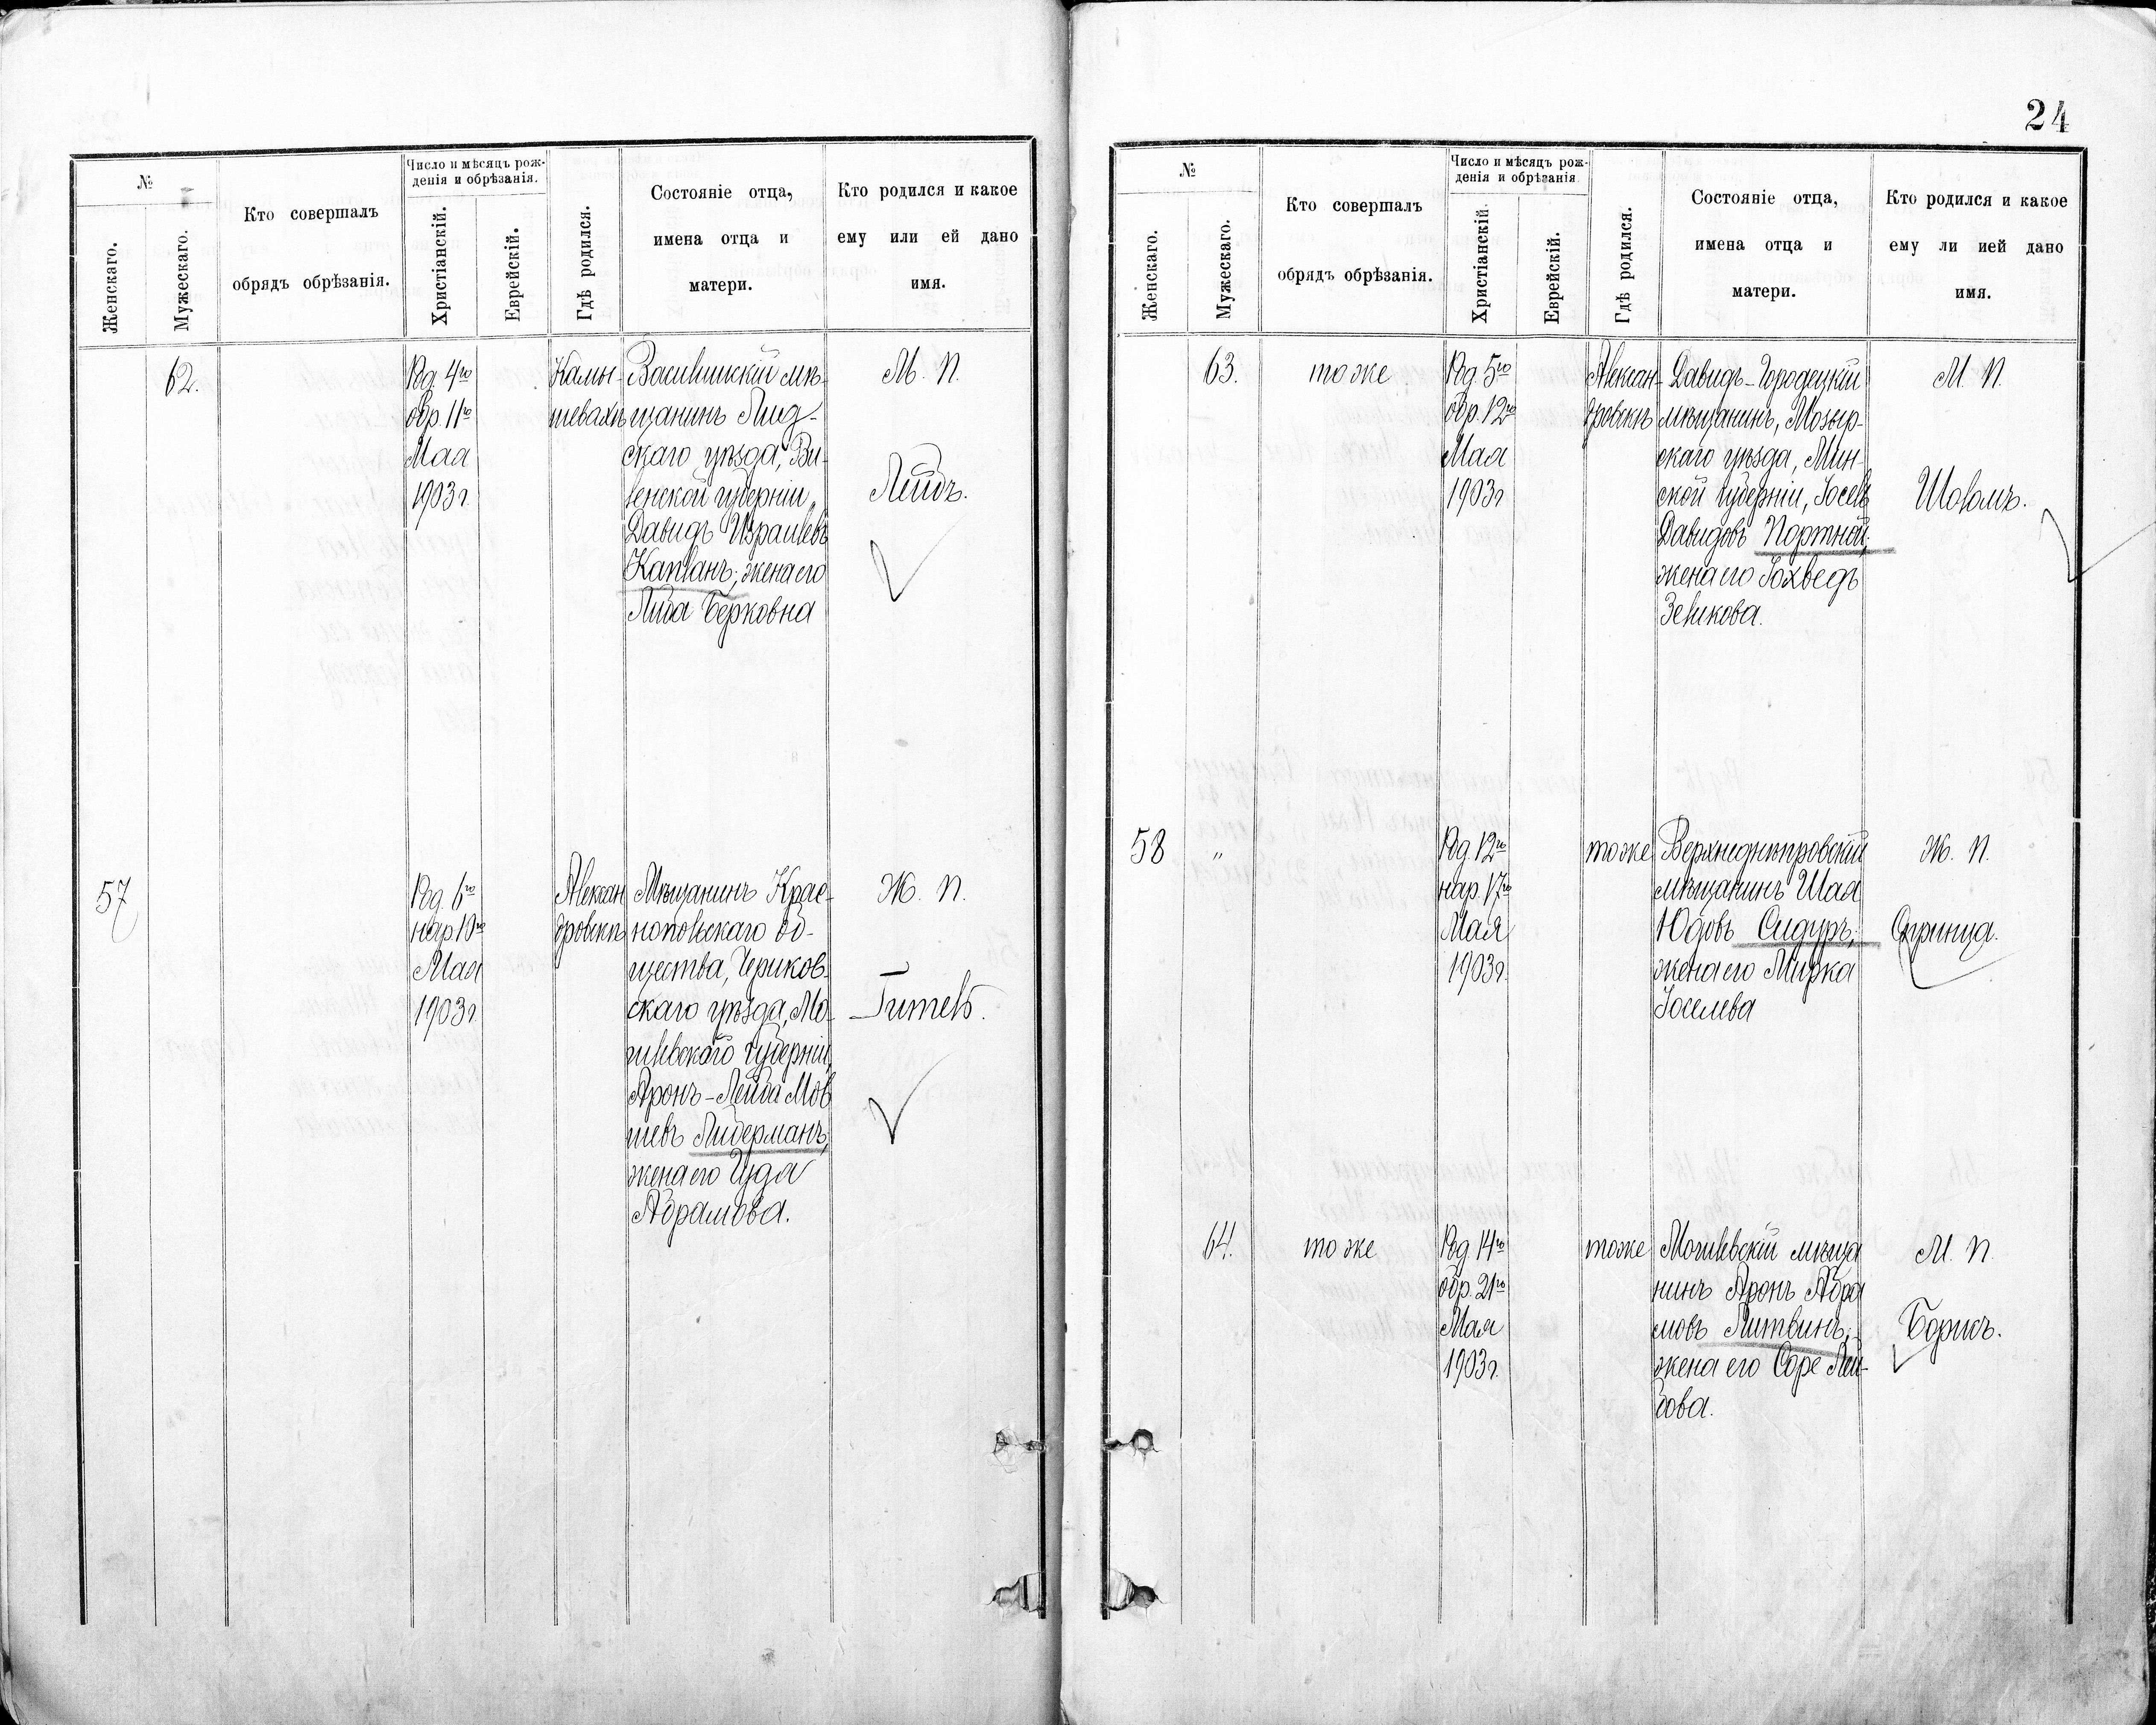 24
№
Женскаго.
Мужескаго.
Кто совершалъ
обрядъ обрѣзанія.
Число и мѣсяцъ рож-
денія и обрѣзанія.
Христіанскій.
Еврейскій.
Гдѣ родился.
Состояніе отца,
имена отца и
матери.
Кто родился и какое
ему или ей дано
имя.
62.
Род. 4го
обр. 11го
Мая
1903 г.
Камы-
шевахѣ
Василишкій мѣ-
щанинъ Лид-
скаго уѣзда, Ви-
ленской губерніи,
Давидъ Израилевъ
Капланъ; жена его
Либа Берковна
М. П.
Лейбъ.
57
Род. 6го
нар. 10го
Мая
1903 г.
Алексан
дровскѣ
Мѣщанинъ Крас-
нопольскаго об-
щества, Чериков-
скаго уѣзда, Мо-
гилевского губерніи,
Аронъ-Лейба Мов
шевъ Либерманъ;
жена его Цуда
Абрамова.
Ж. П.
Гитель.
№
Женскаго.
Мужескаго.
Кто совершалъ
обрядъ обрѣзанія.
Число и мѣсяцъ рож-
денія и обрѣзанія.
Христіанскій.
Еврейскій.
Гдѣ родился.
Состояніе отца,
имена отца и
матери.
Кто родился и какое
ему ли ией дано
имя.
63.
тоже
Род. 5го
обр. 12го
Мая
1903 г.
Алексан-
дровскѣ
Давидъ-Городецкій
мѣщанинъ, Мозыр-
скаго уѣзда, Мин-
ской губерніи, Іосель
Давидовъ Портной;
жена его Іохведъ
Зеликова.
М. П.
Шоломъ.
58
"
Род. 12го
нар. 17го
Мая
1903 г.
тоже
Верхнеднѣпровскій
мѣщанинъ Шая
Юдовъ Сидуръ;
жена его Мирка
Іоселева
Ж. П.
Спринца.
64.
тоже
Род 14го
обр. 21го
Мая
1903 г.
тоже
Могилевскій мѣща
нинъ Аронъ Абра
мовъ Литвинъ;
жена его Соре Лей-
бова.
М. П.
Борисъ.